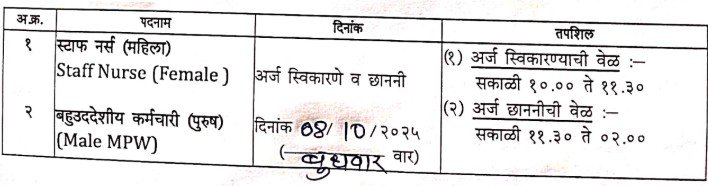 अ.क्र. पदनाम दिनांक तपशिल
१ स्टाफ नर्स (महिला)
Staff Nurse (Female )
अर्ज स्विकारणे व छाननी
(१) अर्ज स्विकारण्याची वेळ :–
सकाळी १०.०० ते ११.३०
२ बहुउददेशीय कर्मचारी (पुरुष)
(Male MPW)
दिनांक 08/10/२०२५
(बुधवार वार)
(२) अर्ज छाननीची वेळ :–
सकाळी ११.३० ते ०२.००